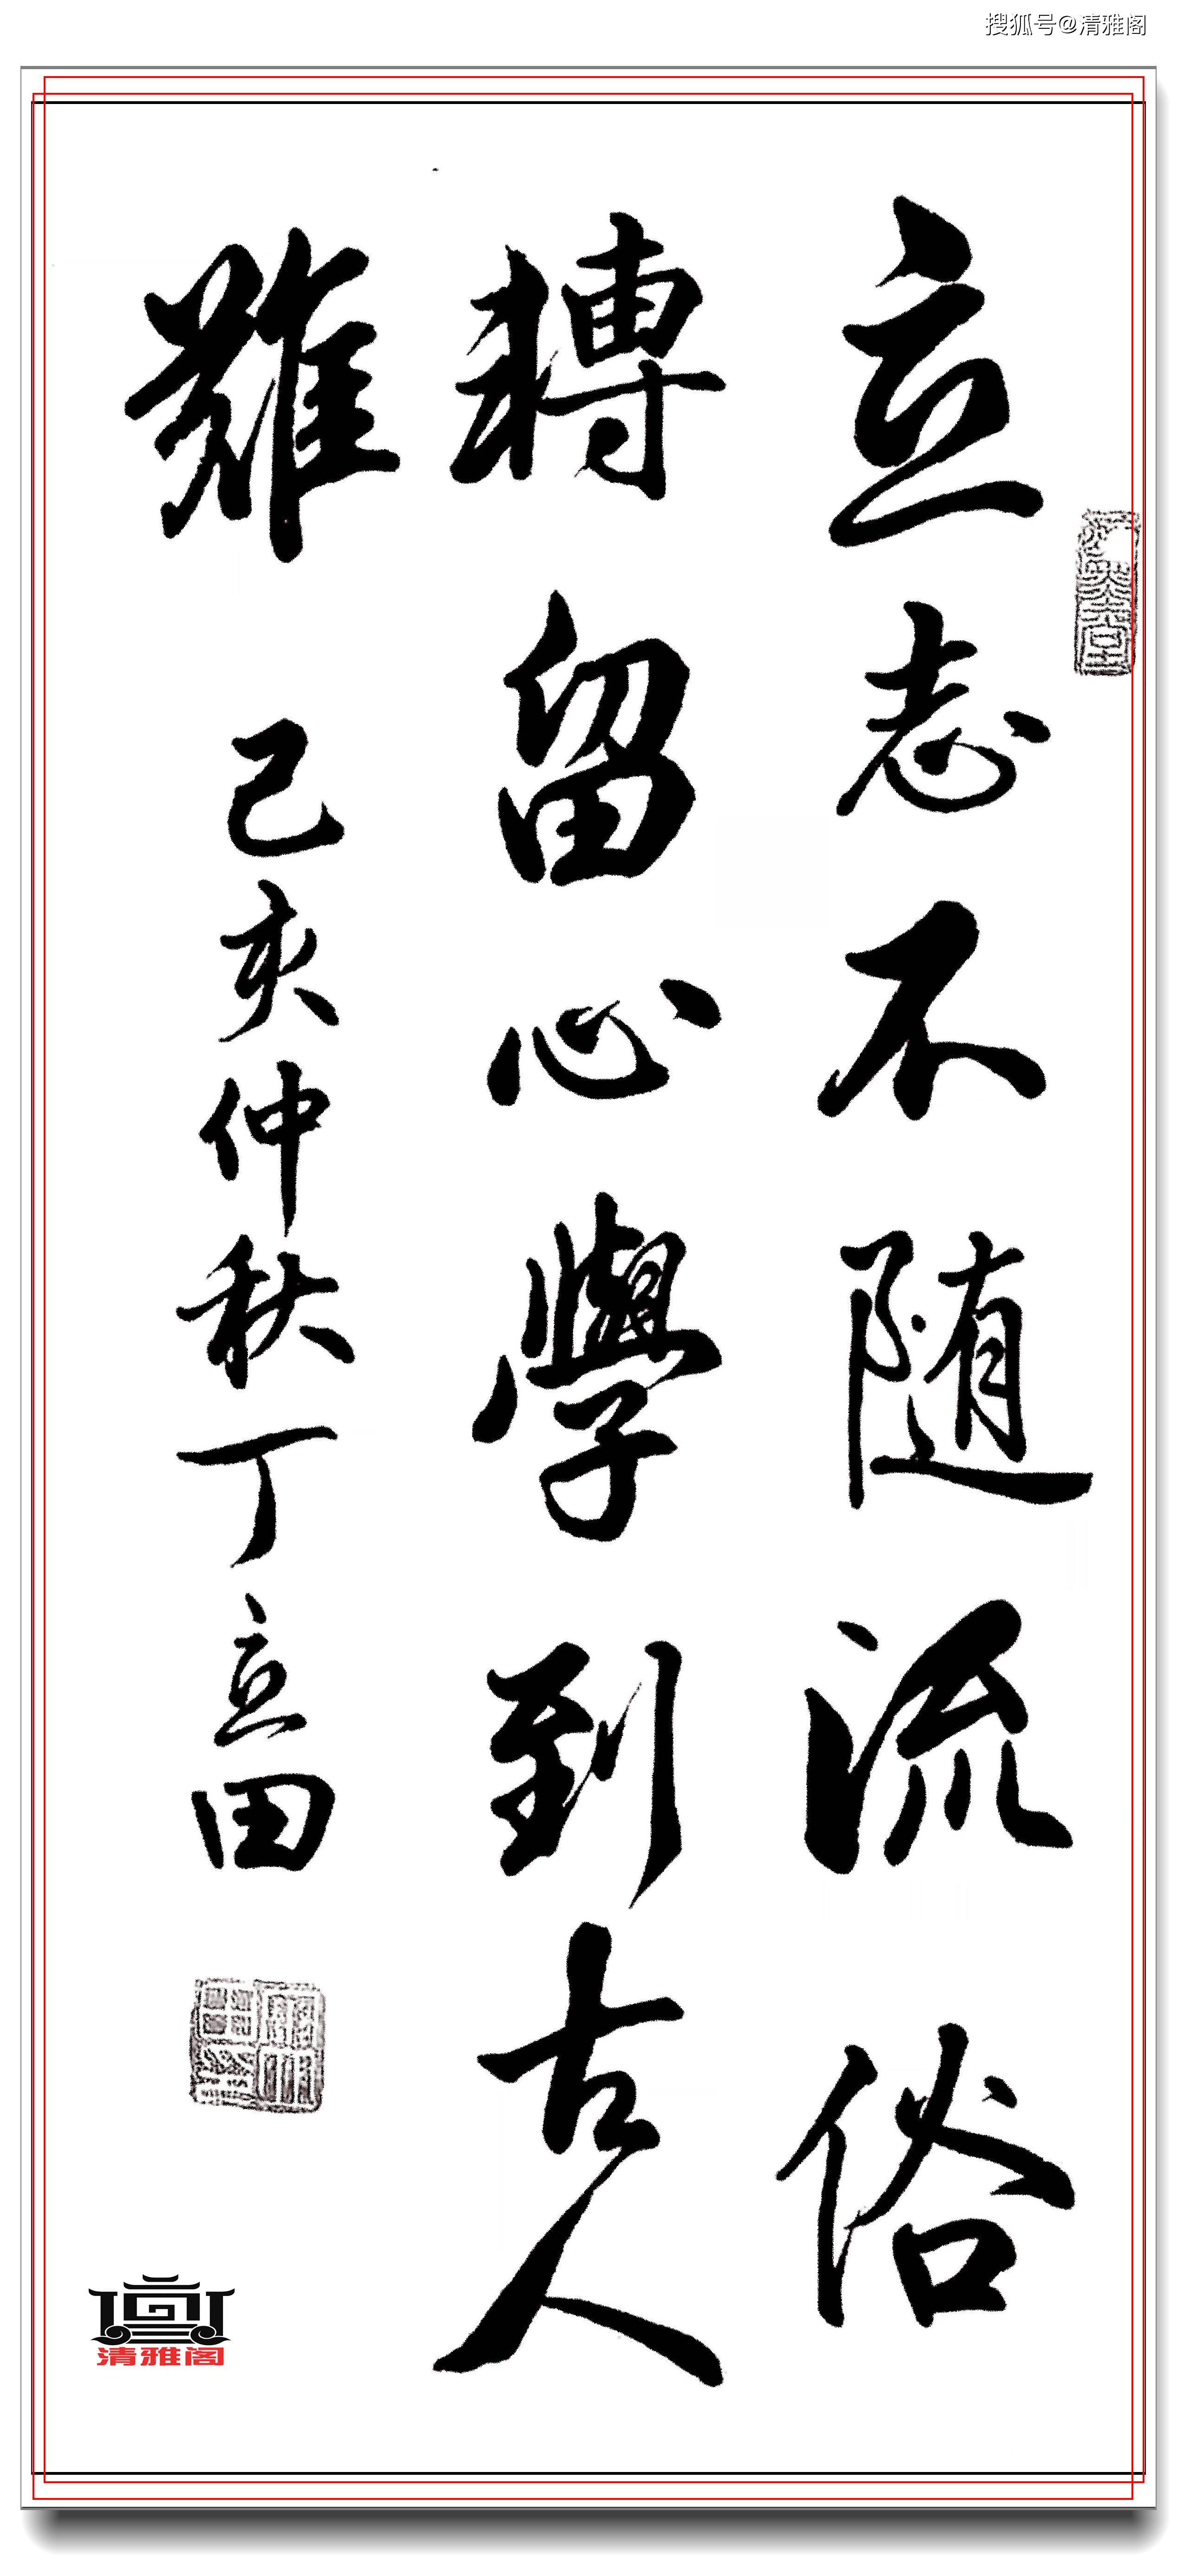 搜狐号@清雅阁
立志不随流俗
轉留心學到古人
難
己亥仲秋丁立田
清雅阁